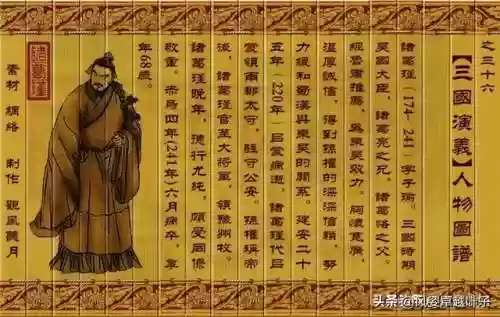 之三十六
【三國演義】人物圖譜
諸葛瑾(174-241)字子瑜。三國時期
吳國大臣,諸葛亮之兄,諸葛恪之父。
經魯肅推薦,為東吳效力。胸懷寬廣
溫厚誠信,得到孫權的深深信賴,努
力緩和蜀漢與東吳的關系。建安二十
五年(220年)呂蒙病逝,諸葛瑾代呂
蒙領南郡太守,駐守公安。孫權稱帝
後,諸葛瑾官至大將軍,領豫州牧。
諸葛瑾晚年,德行尤純,頗受同僚
敬重。赤烏四年(241年)六月病卒,享
年68歲。
諸葛瑾
素材 網絡 制作 觀風 月
头条